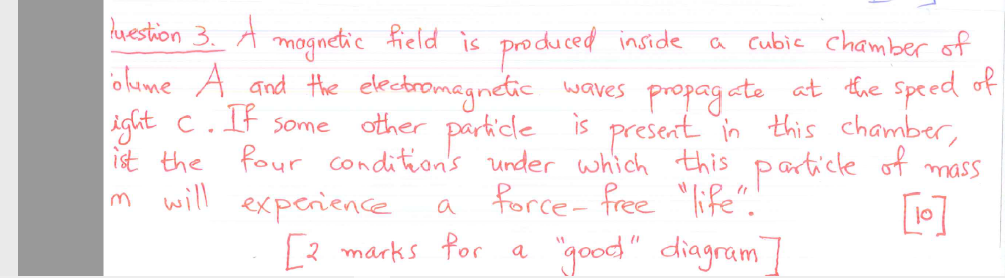 luestion 3. A magnetic field is produced inside a cubic chamber of
olume A and the electromagnetic waves propagate at the speed of
ight c. If some other particle is present in this chamber,
ist the four conditions under which this particle of mass
m will experience a force-free "life".
[10]
[2 marks for a "good" diagram]